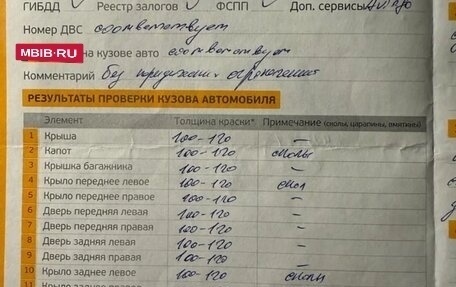 ГИБДД Реестр залогов ФСПП Доп. сервисы Avinfo
Номер ДВС соответствует
MBIB.RU на кузове авто соответствует
Комментарий Без юридических ограничений
РЕЗУЛЬТАТЫ ПРОВЕРКИ КУЗОВА АВТОМОБИЛЯ
Элемент Толщина краски* Примечание (сколы, царапины, вмятины)
1 Крыша 100-120 –
2 Капот 100-120 сколы
3 Крышка багажника 100-120 –
4 Крыло переднее левое 100-120 скол
5 Крыло переднее правое 100-120 –
6 Дверь передняя левая 100-120 –
7 Дверь передняя правая 100-120 –
8 Дверь задняя левая 100-120 –
9 Дверь задняя правая 100-120 –
10 Крыло заднее левое 100-120 сколы
11 Крыло заднее правое